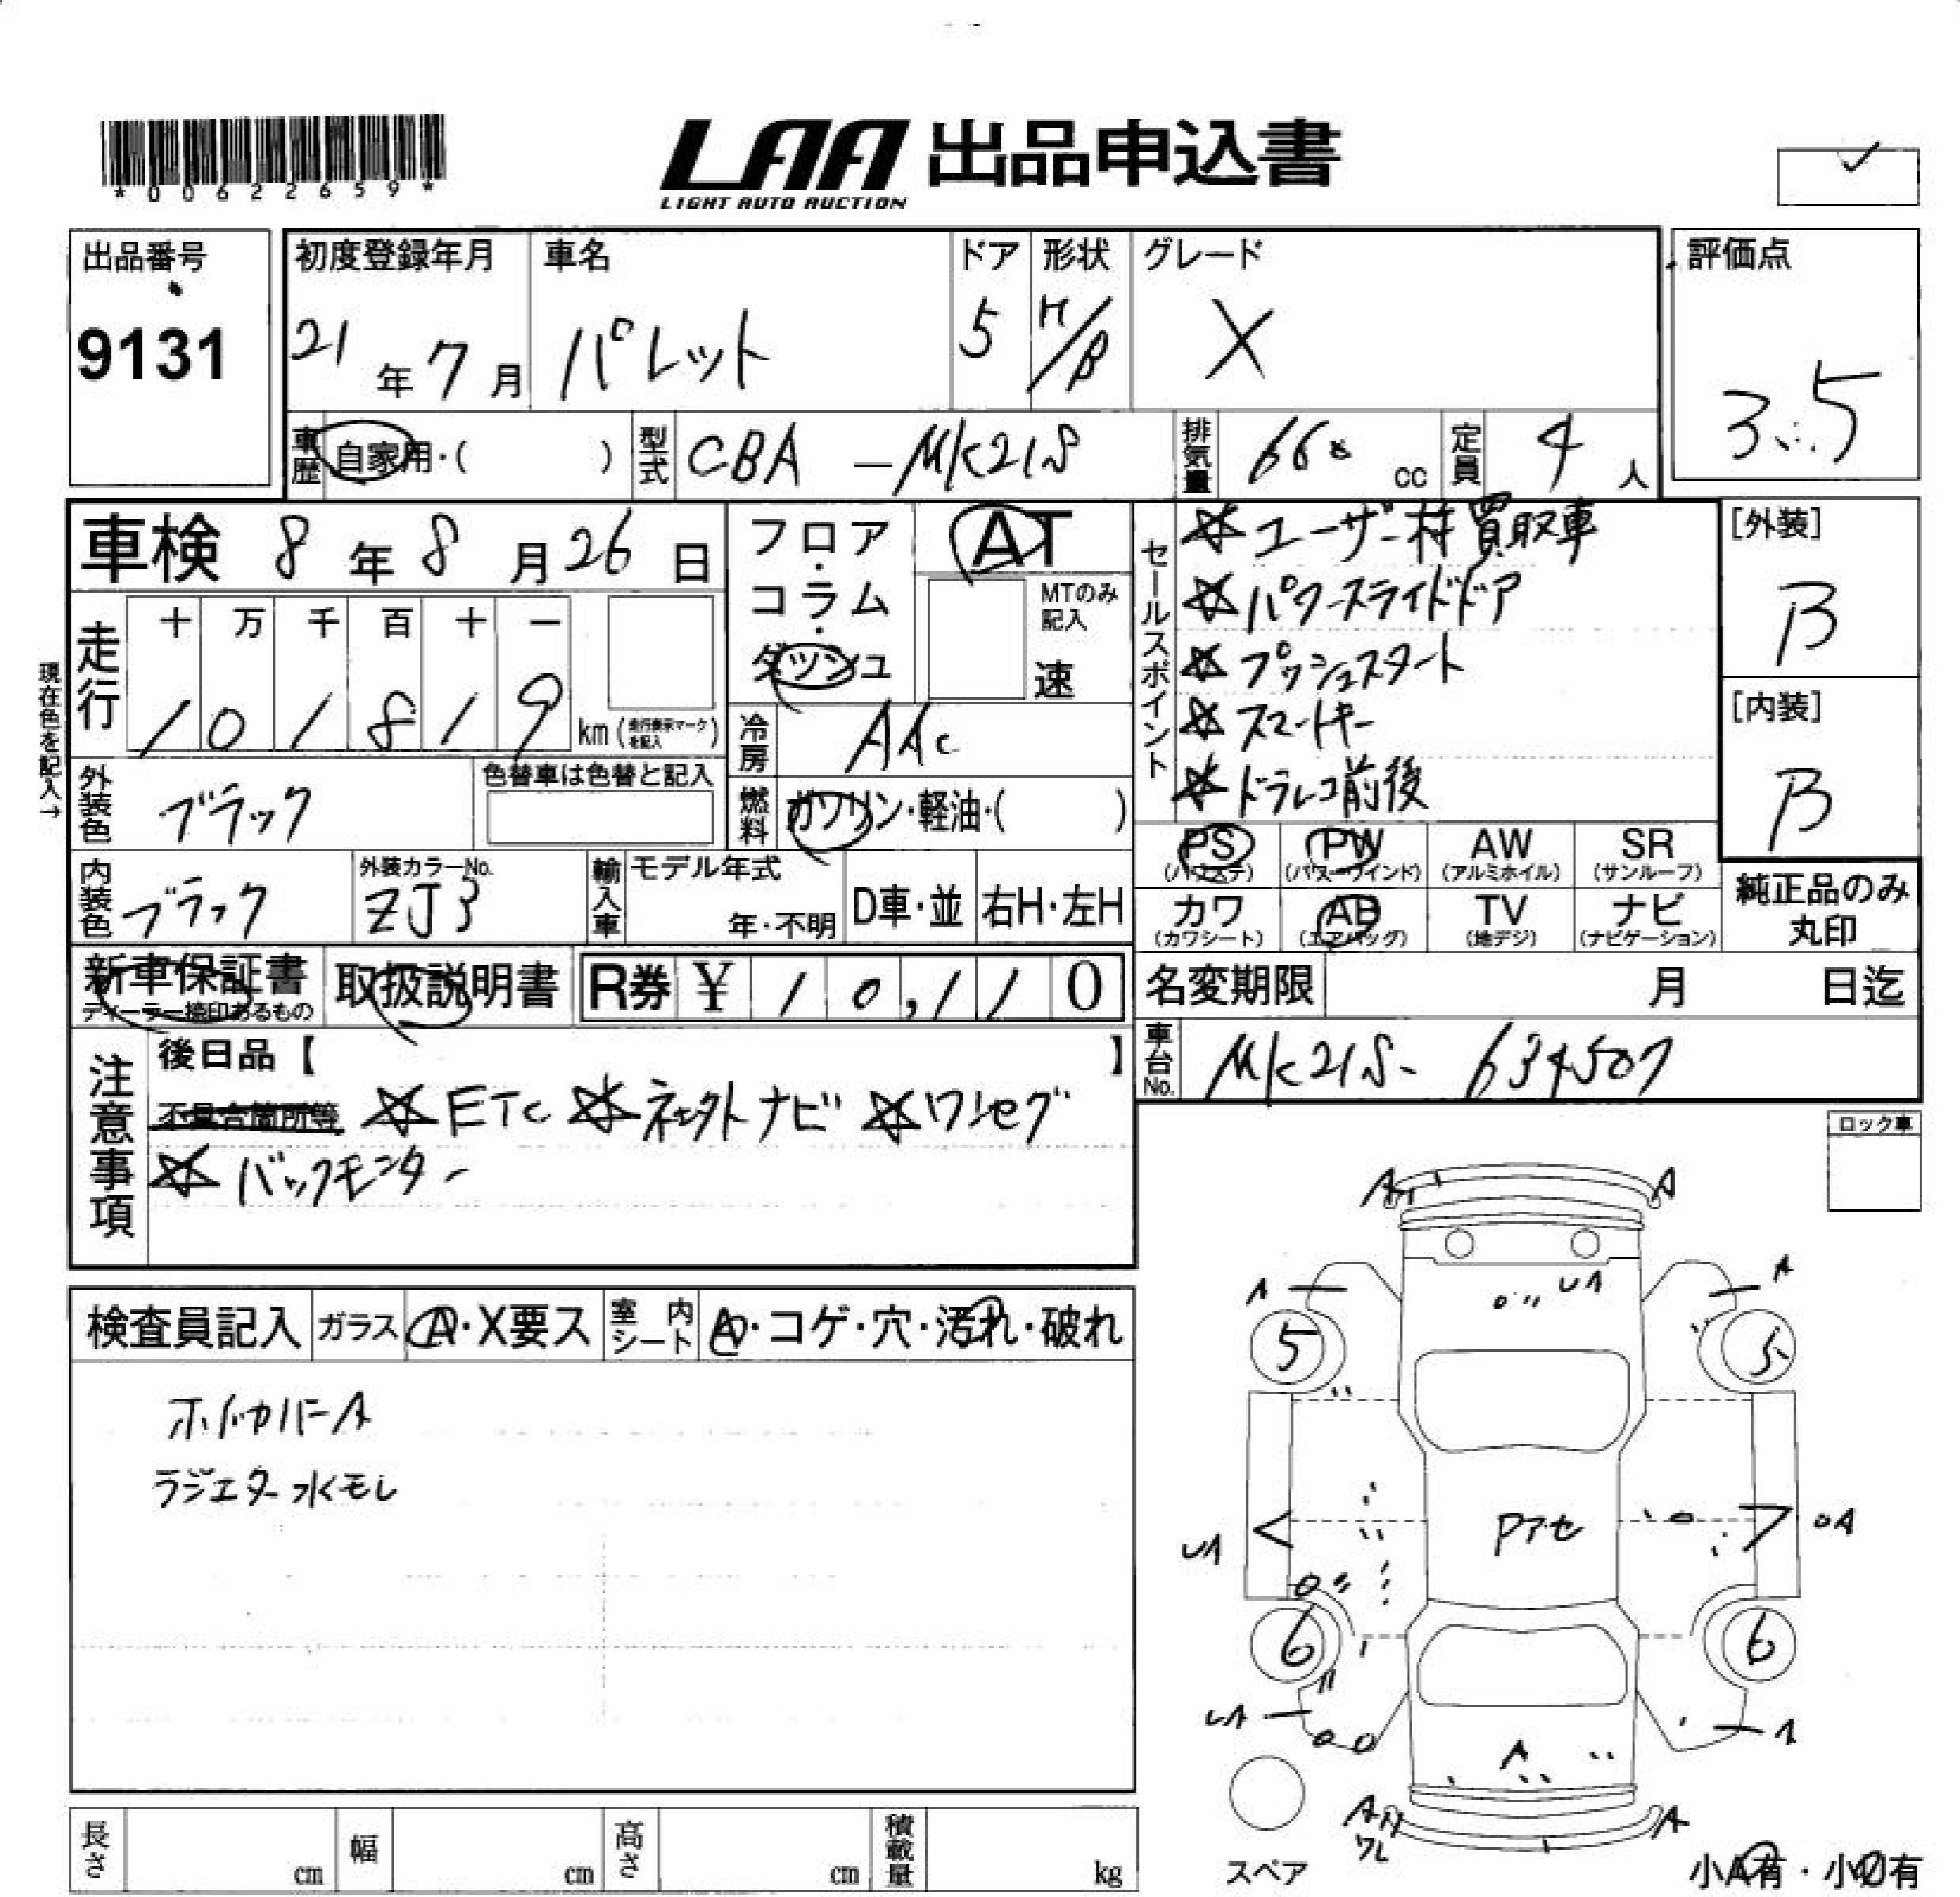 *00622659*
LAA 出品申込書
LIGHT AUTO AUCTION
出品番号
9131
初度登録年月
21年7月
車名
パレット
ドア
5
形状
H/B
グレード
X
評価点
3.5
車歴 自家用・( )
型式 CBA-MK21S
排気量 660 cc
定員 4人
車検 8年8月26日
現在色を記入→
走行
十 万 千 百 十 一
1 0 1 8 1 9 km (走行表示マークを記入)
外装色 ブラック
色替車は色替と記入
フロア・コラム・ダッシュ
AT
MTのみ記入
速
冷房 AAC
燃料 ガソリン・軽油・( )
セールスポイント
☆ユーザー様買取車
☆パワースライドドア
☆プッシュスタート
☆スマートキー
☆ドラレコ前後
[外装]
B
[内装]
B
PS (パワステ)
PW (パワーウインド)
AW (アルミホイル)
SR (サンルーフ)
カワ (カワシート)
AB (エアバッグ)
TV (地デジ)
ナビ (ナビゲーション)
純正品のみ丸印
内装色 ブラック
外装カラーNo. ZJ3
輸入車
モデル年式
年・不明
D車・並
右H・左H
新車保証書
ディーラー捺印あるもの
取扱説明書
R券 ¥10,110
名変期限 月 日迄
車台No. MK21S-634507
注意事項
後日品【 】
不具合箇所等 ☆ETC ☆ネェクトナビ ☆ワンセグ
☆バックモニター
ロック車
検査員記入
ガラス A・X要ス
室内シート A・コゲ・穴・汚れ・破れ
ホイルカバーA
ラジエター水モレ
A A
A A
UA
5 5
Pアセ
UA UA
6 6
UA A
A
A A
ワレ
スペア
小A有・小U有
長さ cm
幅 cm
高さ cm
積載量 kg